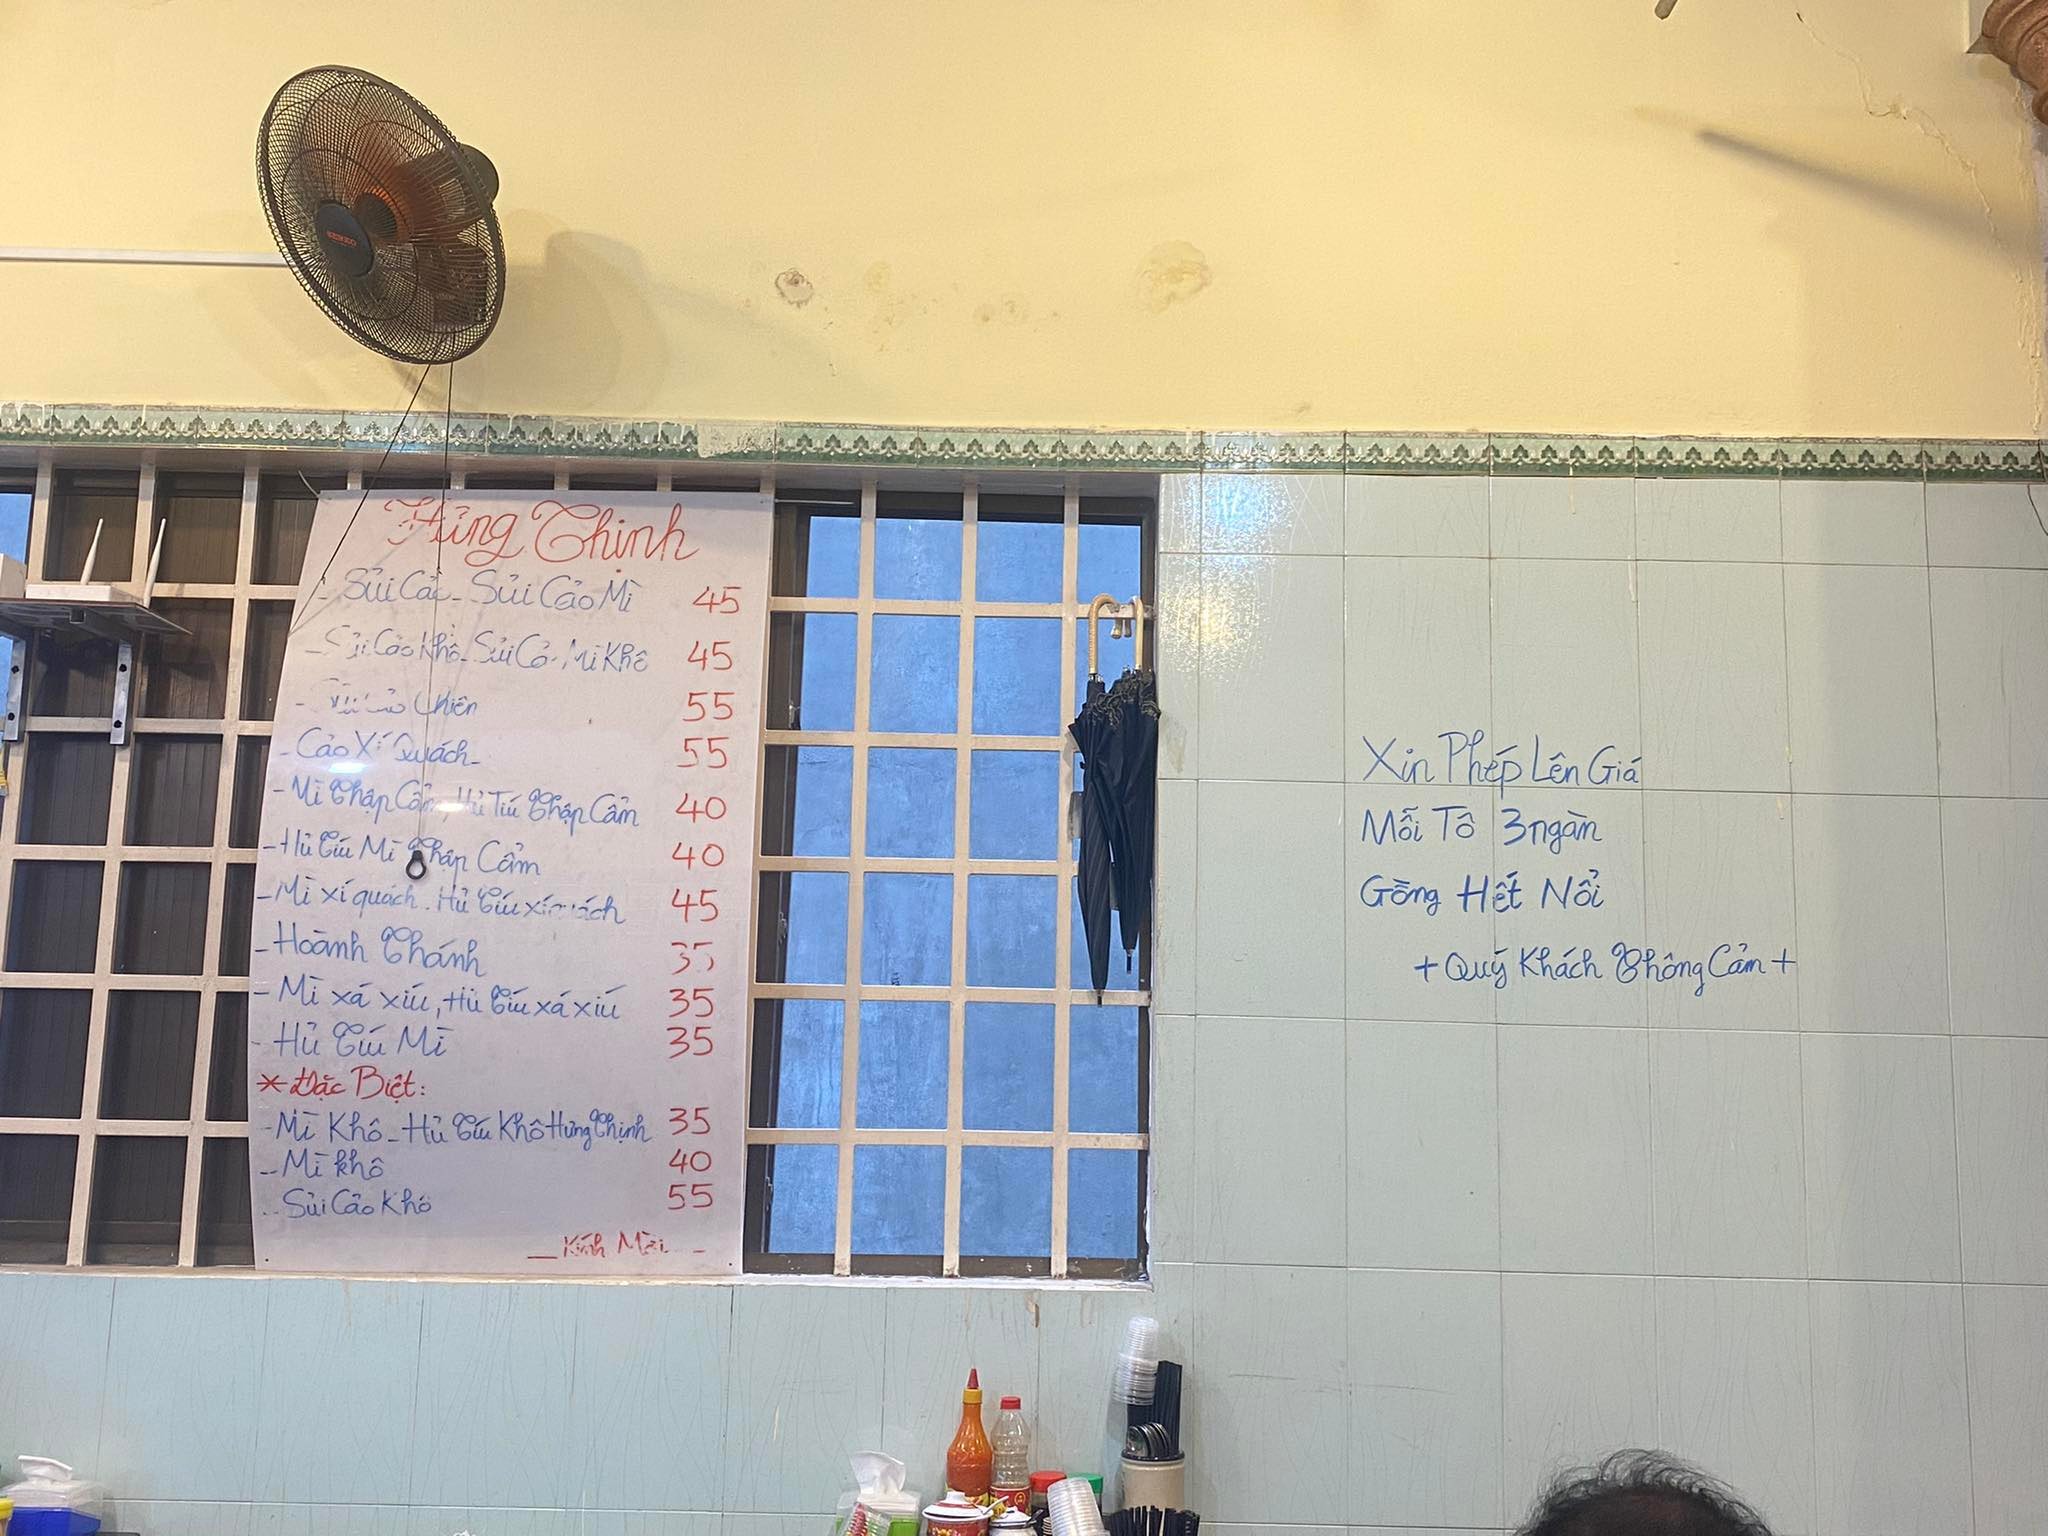 Hưng Thịnh
- Sủi Cảo - Sủi Cảo Mì 45
- Sủi Cảo Khô - Sủi Cảo Mì Khô 45
- Sủi Cảo Chiên 55
- Cảo Xí Quách - 55
- Mì Thập Cẩm, Hủ Tíu Thập Cẩm 40
- Hủ Tíu Mì Thập Cẩm 40
- Mì xí quách - Hủ Tíu xí quách 45
- Hoành Thánh 35
- Mì xá xíu, Hủ Tíu xá xíu 35
- Hủ Tíu Mì 35
* Đặc Biệt:
- Mì Khô - Hủ Tíu Khô Hưng Thịnh 35
- Mì khô 40
- Sủi Cảo Khô 55
Kính Mời
Xin Phép Lên Giá
Mỗi Tô 3 ngàn
Gồng Hết Nổi
+ Quý Khách Thông Cảm +